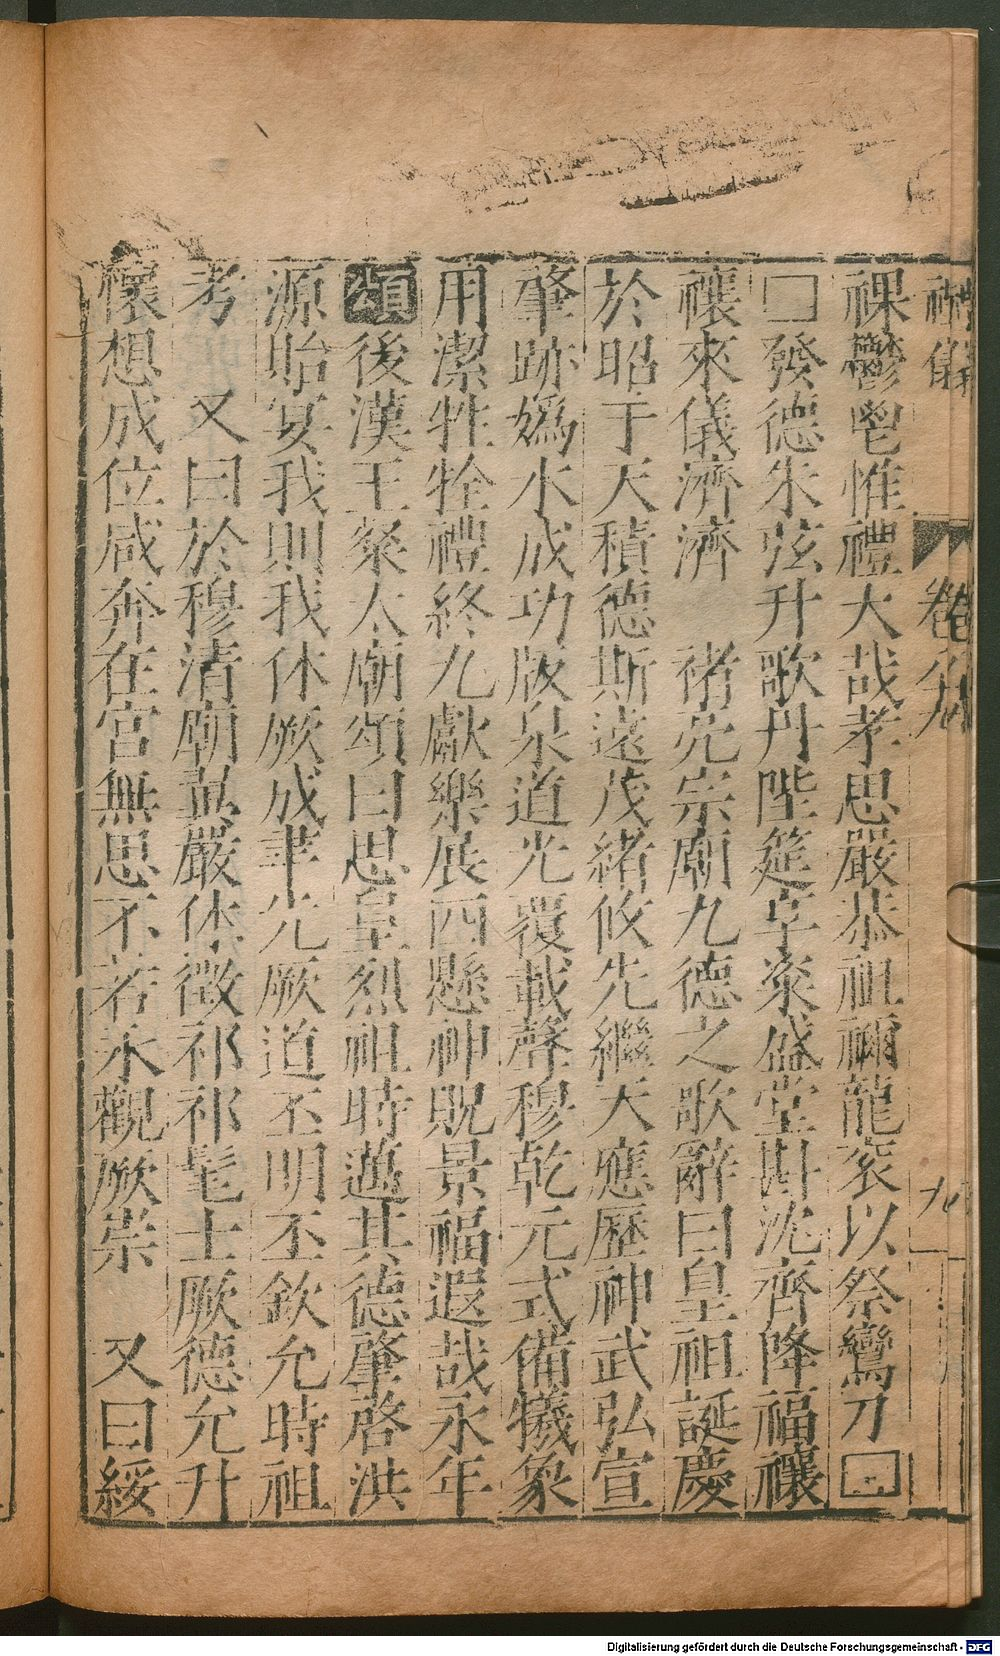 卷
九
祼鬱鬯惟禮大哉孝思嚴恭祖禰龍衮以祭鸞刀□
□發德朱弦升歌丹陛筵享粢盛堂斟沈齊降福穰
穰來儀濟濟 褚亮宗廟九德之歌辭曰皇祖誕慶
於昭于天積德斯遠茂緒攸先繼天應歷神武弘宣
肇跡嬀水成功版泉道光覆載聲穆乾元式備犧象
用潔牲牷禮終九獻樂展四懸神貺景福遐哉永年
頌後漢王粲太廟頌曰思皇烈祖時邁其德肇啓洪
源貽宴我則我休厥成聿光厥道丕明丕欽允時祖
考 又曰於穆清廟翼嚴休徵祁祁髦士厥德允升
懷想成位咸奔在宮無思不若永觀厥崇 又曰綏
Digitalisierung gefördert durch die Deutsche Forschungsgemeinschaft - DFG